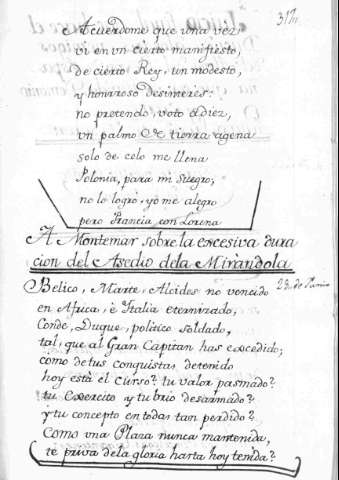 312
Acuerdome que una vez
vi en vn cierto manifiesto,
de cierto Rey, un modesto,
y honrroso desinteres:
no pretendo, voto à diez,
vn palmo de tierra agena
solo de celo me llena
Polonia, para mi Suegro;
no lo logro, yo me alegro
pero Francia con Lorena
A Montemar sobre la excesiva dura
cion del Asedio dela Mirandola
Belico, Marte, Alcides no vencido 23 de Junio
en Africa, è Italia eternizado,
Conde, Duque, politico soldado,
tal, que al Gran Capitan has excedido;
como de tus conquistas detenido
hoy està el curso? tu valor pasmado?
tu exercito y tu brio desarmado?
y tu concepto en todas tan perdido?
Como vna Plaza nunca mantenida,
te priva dela gloria harta hoy tenida?